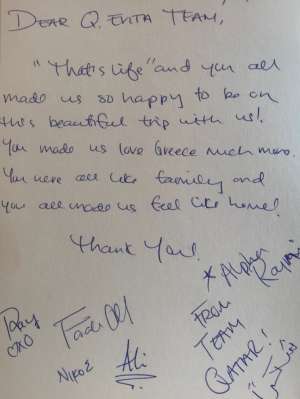 DEAR Q. EVITA TEAM,
"That's life" and you all
made us so happy to be on
this beautiful trip with us!
You made us love Greece much more.
You were all like family and
you all made us feel like home!
Thank You!
* Alpha
FROM
TEAM
QATAR!
Fadi
Νίκος
Ali